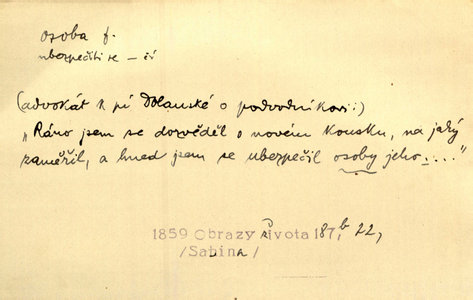 osoba f.
ubezpečiti se – čí
(advokát k pí Dolanské o podvodníkovi:)
„Ráno jsem se dověděl o novém kousku, na jaký
zaměřil, a hned jsem se ubezpečil osoby jeho ...."
1859 Obrazy života 187, b 22,
/Sabina/